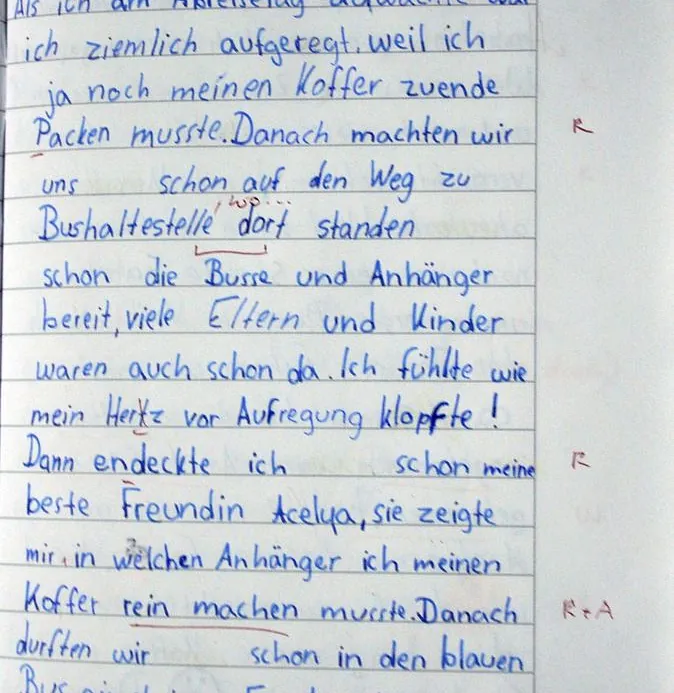 Als ich am Abreisetag aufwachte war
ich ziemlich aufgeregt, weil ich
ja noch meinen Koffer zuende
Packen musste. Danach machten wir R
uns schon auf den Weg zu
, wo...
Bushaltestelle dort standen
schon die Busse und Anhänger
bereit, viele Eltern und Kinder
waren auch schon da. Ich fühlte wie
mein Hertz vor Aufregung klopfte!
Dann endeckte ich schon meine R
beste Freundin Acelya, sie zeigte
mir, in welchen Anhänger ich meinen
Koffer rein machen musste. Danach R+A
durften wir schon in den blauen
Bus